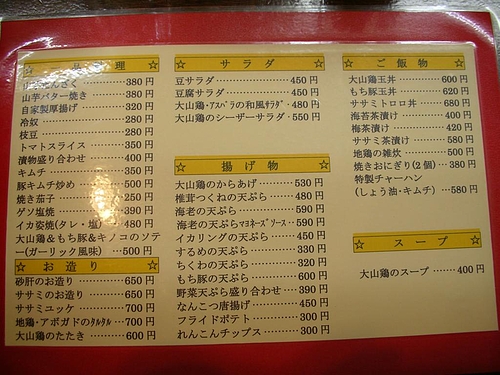 ☆ 一品料理 ☆
380円
山芋バター焼き 380円
自家製厚揚げ 320円
冷奴 280円
枝豆 280円
トマトスライス 350円
漬物盛り合わせ 400円
キムチ 350円
豚キムチ炒め 500円
焼き茄子 250円
ゲソ塩焼 390円
イカ姿焼(タレ・塩) 480円
大山鶏&もち豚&キノコのソテ
ー(ガーリック風味) 500円
☆ お造り ☆
砂肝のお造り 650円
ササミのお造り 650円
ササミユッケ 700円
地鶏・アボガドのタルタル 700円
大山鶏のたたき 600円
☆ サラダ ☆
豆サラダ 450円
豆腐サラダ 450円
大山鶏・アスパラの和風サラダ 480円
大山鶏のシーザーサラダ 550円
☆ 揚げ物 ☆
大山鶏のからあげ 530円
椎茸つくねの天ぷら 480円
海老の天ぷら 590円
海老の天ぷらマヨネーズソース 590円
イカリングの天ぷら 450円
するめの天ぷら 330円
ちくわの天ぷら 320円
もち豚の天ぷら 600円
野菜天ぷら盛り合わせ 390円
なんこつ唐揚げ 450円
フライドポテト 300円
れんこんチップス 300円
☆ ご飯物 ☆
大山鶏玉丼 600円
もち豚玉丼 620円
ササミトロロ丼 680円
海苔茶漬け 400円
梅茶漬け 420円
ササミ茶漬け 580円
地鶏の雑炊 500円
焼きおにぎり(2個) 380円
特製チャーハン
(しょう油・キムチ) 580円
☆ スープ ☆
大山鶏のスープ 400円